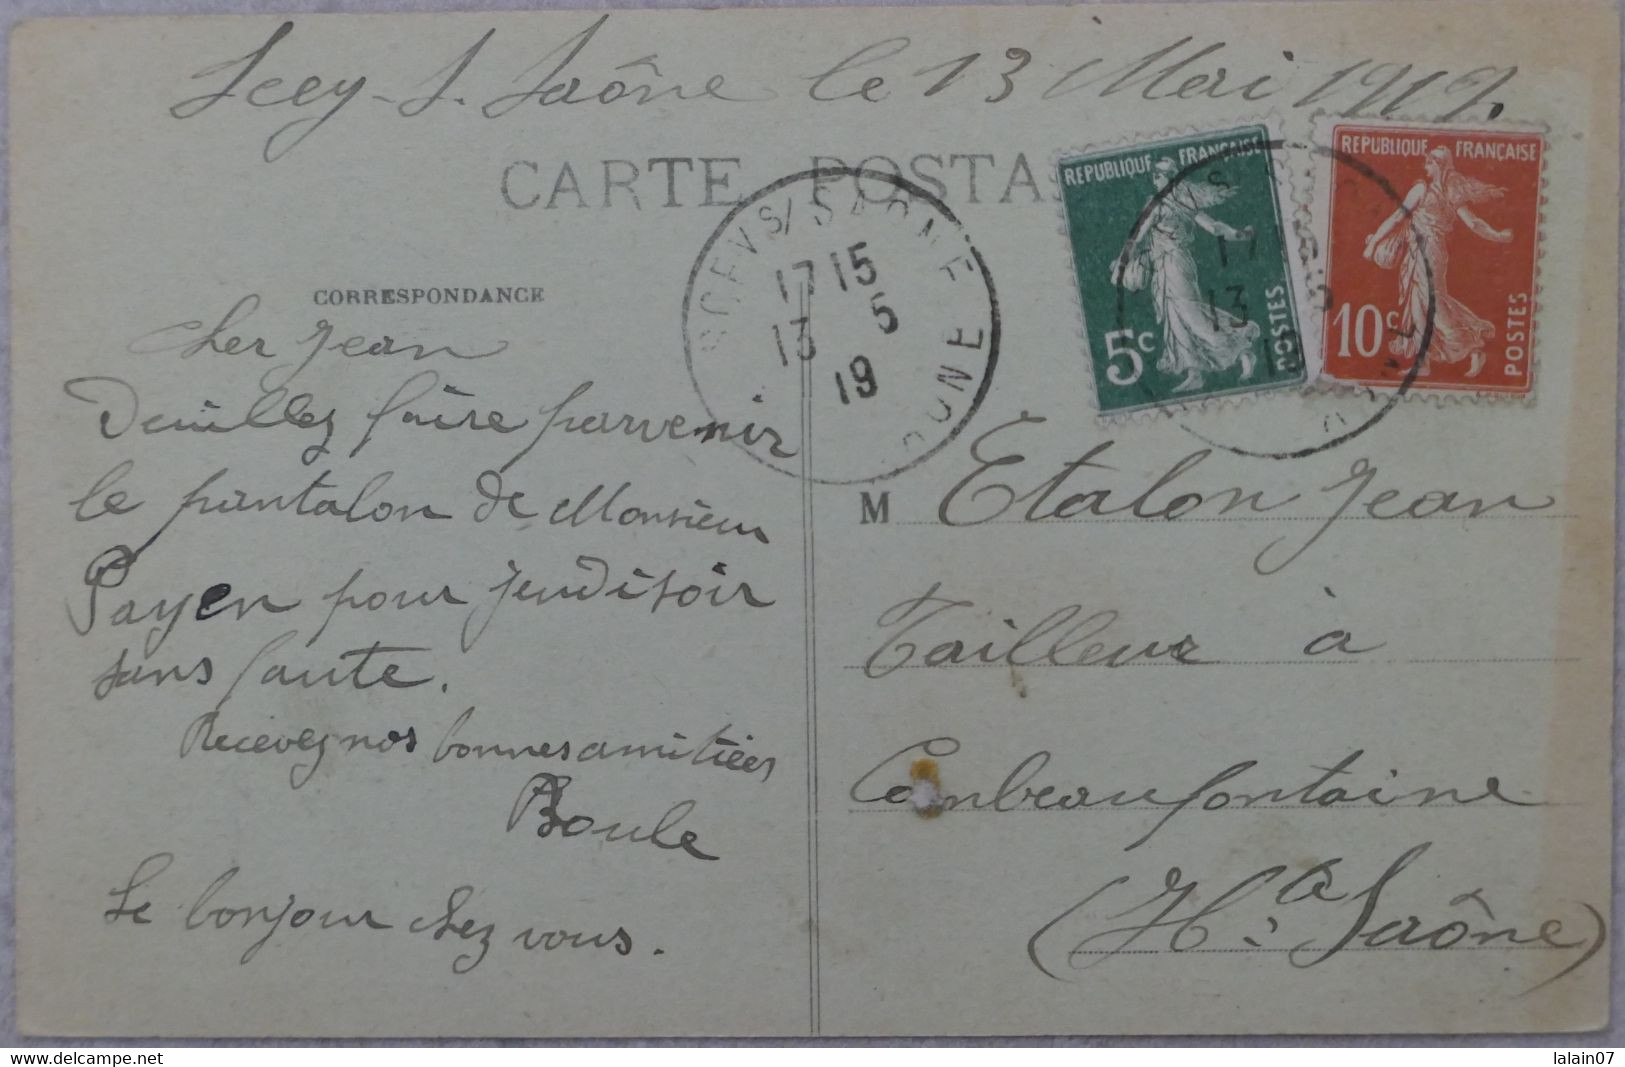 Scey-s. Saône le 13 Mai 1919.
CARTE POSTA
REPUBLIQUE FRANÇAISE
5c
POSTES
REPUBLIQUE FRANÇAISE
10c
POSTES
SCEY S/SAONE
17 15
13 5
19
17
13
19
CORRESPONDANCE
Cher Jean
Veuillez faire parvenir
le pantalon de Monsieur
Payen pour jeudi soir
sans faute.
Recevez nos bonnes amitiées
Boule
Le bonjour chez vous.
M Etalon Jean
Tailleur à
Combeaufontaine
(Hte Saône)
www.delcampe.net
lalain07